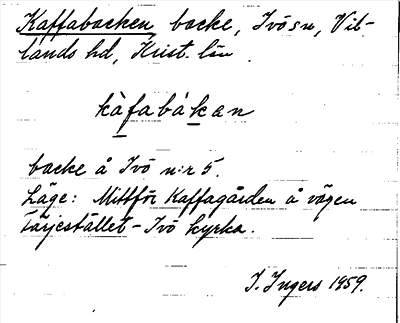 Kaffabacken, backe, Ivö sn, Vil-
lands hd, Krist. län.
kàfabákan
backe å Ivö n:r 5.
Läge: Mittför Kaffagården å vägen
Färjestället - Ivö kyrka.
I. Ingers 1959.